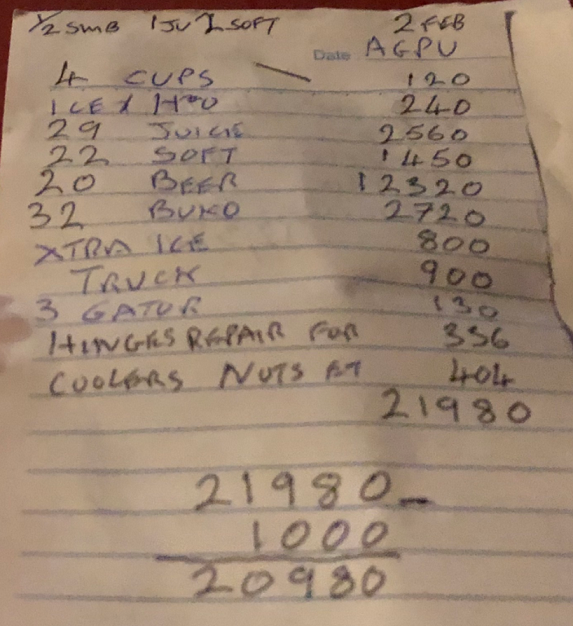 1/2 SMB 1JU 1/2 SOFT 2 FEB
Date AGPU
4 CUPS 120
ICE X H20 240
29 JUICIE 2560
22 SOFT 1450
20 BEER 12320
32 BUKO 2720
XTRA ICE 800
TRUCK 900
3 GATOR 130
HINGES REPAIR FOR 336
COOLERS NUTS ET 404
21980
21980 -
1000
20980